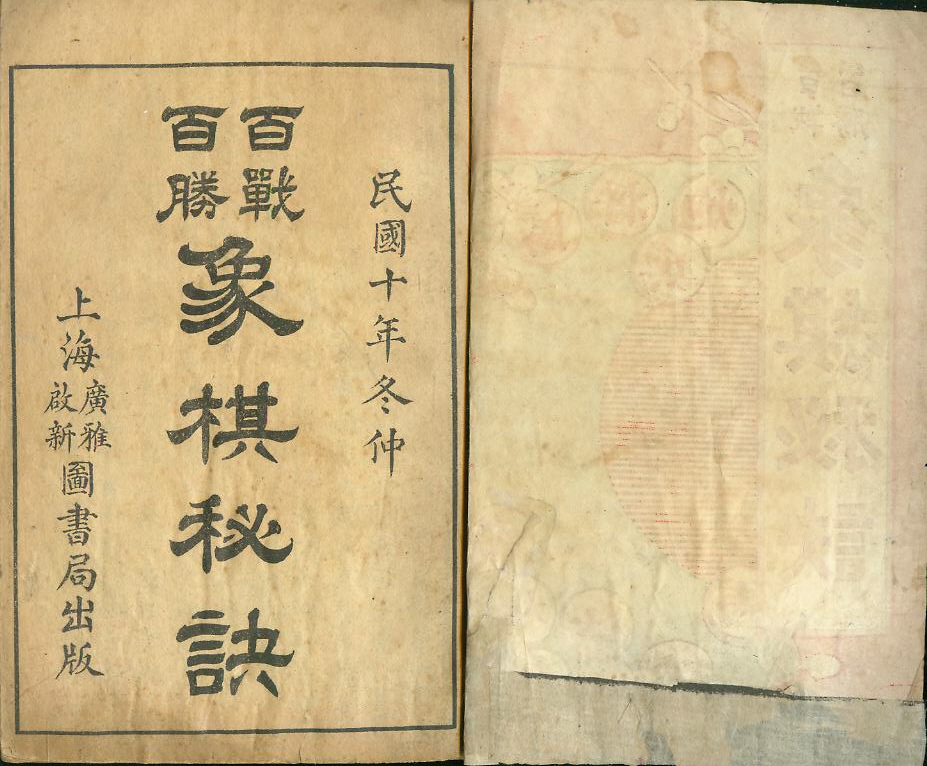 民國十年冬仲
百戰
百勝
象棋秘訣
上海
廣雅
啟新
圖書局出版